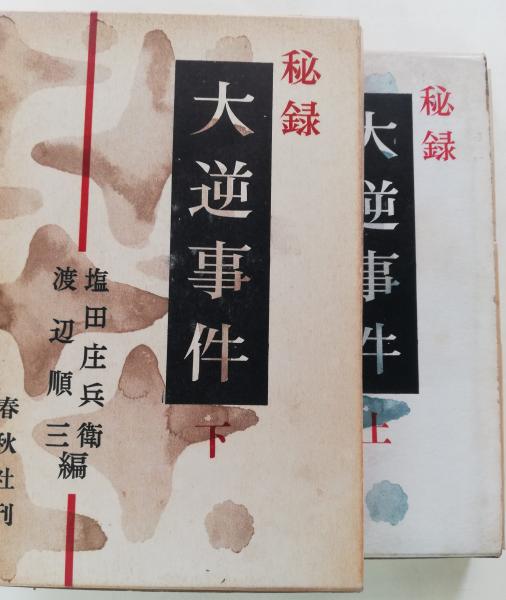 秘録
大逆事件
下
塩田庄兵衛
渡辺順三編
春秋社刊
秘録
大逆事件
上